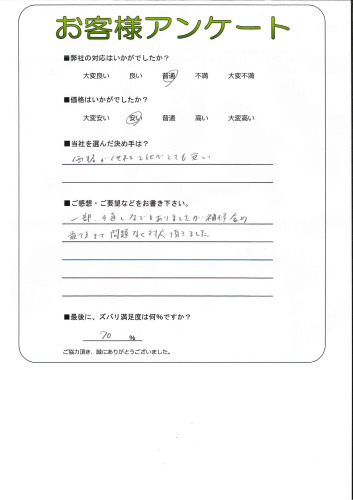 お客様アンケート
■弊社の対応はいかがでしたか？
大変良い 良い 普通 不満 大変不満
■価格はいかがでしたか？
大変安い 安い 普通 高い 大変高い
■当社を選んだ決め手は？
価格が他社と比べとても安い
■ご感想・ご要望などをお書き下さい。
一部、手直しなどもありましたが補修含め
問題なく対応頂きました
■最後に、ズバリ満足度は何％ですか？
70 ％
ご協力頂き、誠にありがとうございました。